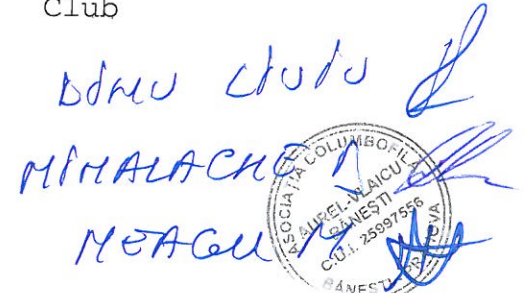 Club
DINU LIVIU
MIHALACHE
NEAGU M
ASOCIAȚIA COLUMBOFILĂ
AUREL-VLAICU
BĂNEȘTI
C.U.I. 25997556
BĂNEȘTI - PRAHOVA